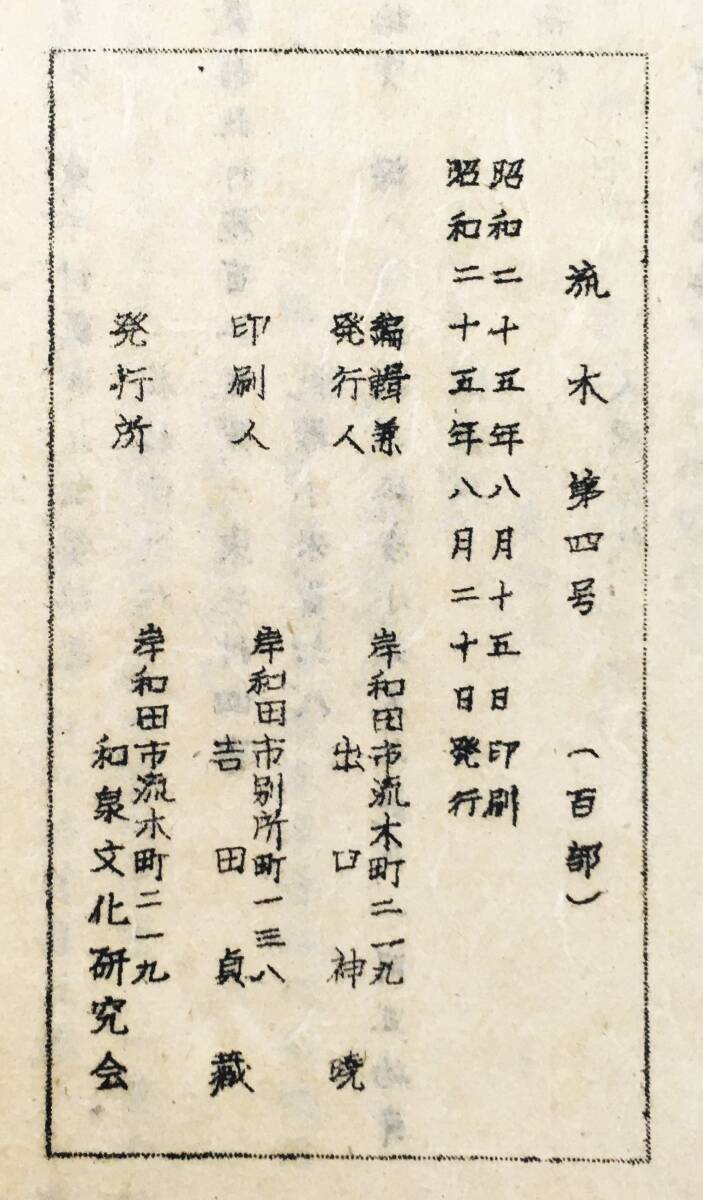 流木 第四号 (百部)
昭和二十五年八月十五日印刷
昭和二十五年八月二十日発行
編輯兼
発行人
岸和田市流木町二一九
出口神暁
印刷人
岸和田市別所町一三八
吉田貞蔵
発行所
岸和田市流木町二一九
和泉文化研究会